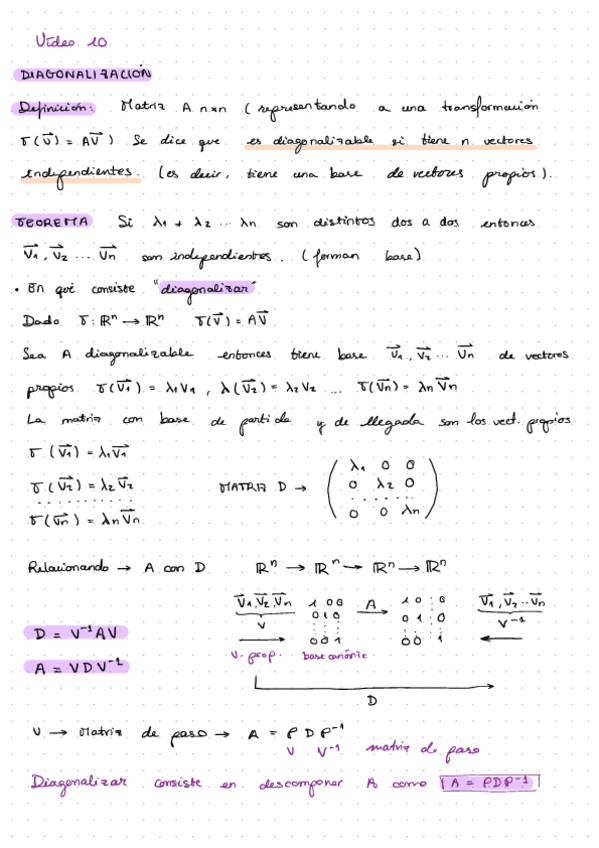 Vídeo 10
DIAGONALIZACIÓN
Definición: Matriz A n×n (representando a una transformación
T(v⃗) = Av⃗) Se dice que es diagonalizable si tiene n vectores
independientes. (es decir, tiene una base de vectores propios).
TEOREMA Si λ1 ≠ λ2 ... λn son distintos dos a dos entonces
v⃗1, v⃗2 ... v⃗n son independientes. (forman base)
• En qué consiste "diagonalizar"
Dado T: ℝⁿ → ℝⁿ T(v⃗) = Av⃗
Sea A diagonalizable entonces tiene base v⃗1, v⃗2 ... v⃗n de vectores
propios T(v⃗1) = λ1V1, λ(v⃗2) = λ2V2 ... T(v⃗n) = λn v⃗n
La matriz con base de partida y de llegada son los vect. propios
T(v⃗1) = λ1v⃗1
T(v⃗2) = λ2v⃗2
..............
T(v⃗n) = λnv⃗n
MATRIZ D →
λ1 0 0
0 λ2 0
........
0 0 λn
Relacionando → A con D ℝⁿ → ℝⁿ → ℝⁿ → ℝⁿ
v⃗1, v⃗2, v⃗n
V
v. prop.
1 0 0
0 1 0
: : :
0 0 1
base canónic
A →
1 0 : 0
0 1 : 0
: : :
0 0 : 1
v⃗1, v⃗2 .. v⃗n
V⁻¹
D
D = V⁻¹AV
A = VDV⁻¹
V → Matriz de paso → A = P D P⁻¹
V V⁻¹ matriz de paso
Diagonalizar consiste en descomponer A como A = PDP⁻¹